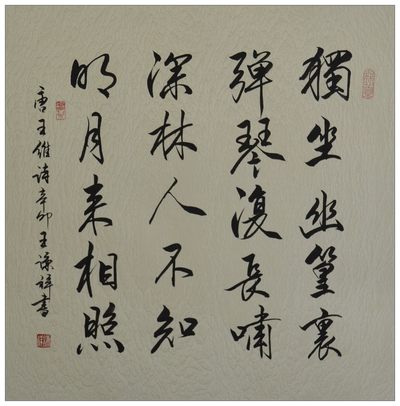 獨坐幽篁裏
弹琴復長嘯
深林人不知
明月来相照
唐王維诗辛卯王谦祥書